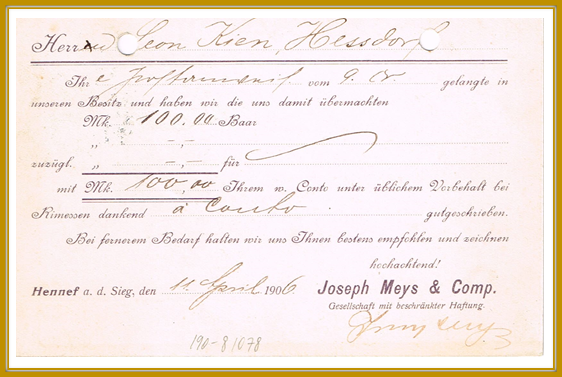 Herrn Leon Kien, Hessdorf
Ihre Postanweis. vom 9. cr. gelangte in
unseren Besitz und haben wir die uns damit übermachten
Mk. 100.00 Baar
„ -,-
zuzügl. „ -,- für
mit Mk. 100,00 Ihrem w. Conto unter üblichem Vorbehalt bei
Rimessen dankend à Conto gutgeschrieben.
Bei fernerem Bedarf halten wir uns Ihnen bestens empfohlen und zeichnen
hochachtend!
Hennef a. d. Sieg, den 11. April 1906 Joseph Meys & Comp.
Gesellschaft mit beschränkter Haftung.
190-8/078